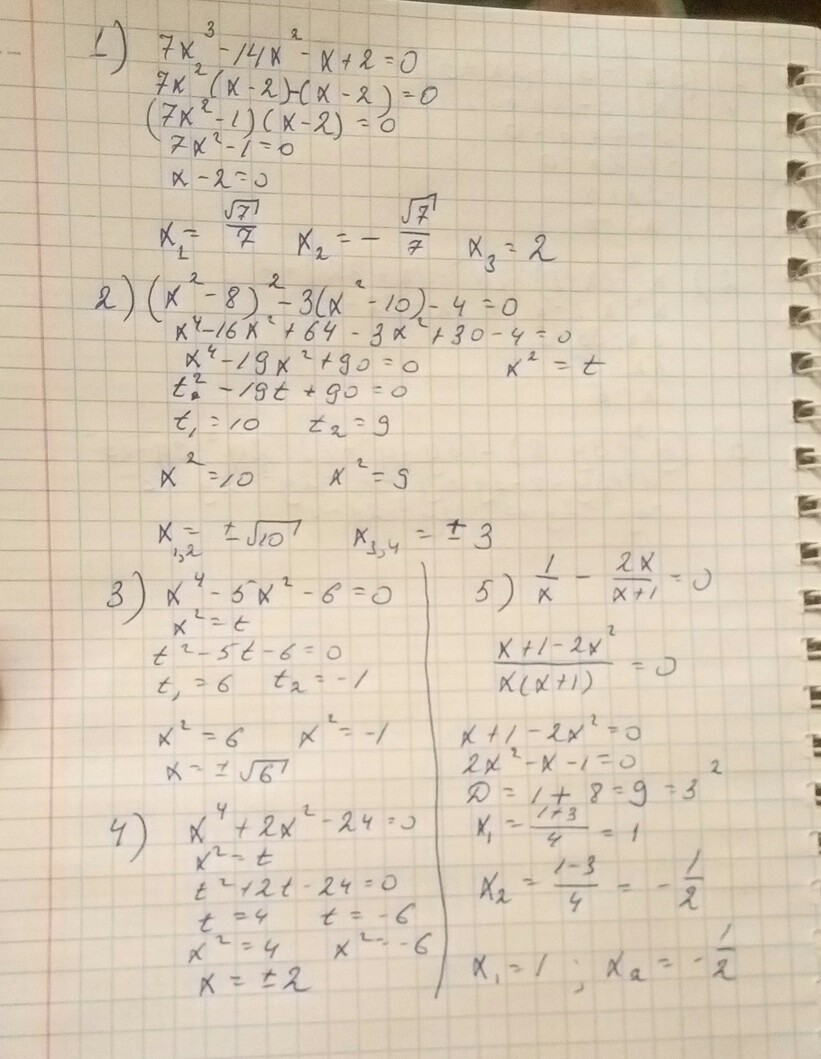 1) 7x³ - 14x² - x + 2 = 0
7x²(x - 2) - (x - 2) = 0
(7x² - 1)(x - 2) = 0
7x² - 1 = 0
x - 2 = 0
x₁ = √7/7 x₂ = - √7/7 x₃ = 2
2) (x² - 8)² - 3(x² - 10) - 4 = 0
x⁴ - 16x² + 64 - 3x² + 30 - 4 = 0
x⁴ - 19x² + 90 = 0 x² = t
t² - 19t + 90 = 0
t₁ = 10 t₂ = 9
x² = 10 x² = 9
x₁,₂ = ±√10 x₃,₄ = ±3
3) x⁴ - 5x² - 6 = 0
x² = t
t² - 5t - 6 = 0
t₁ = 6 t₂ = -1
x² = 6 x² = -1
x = ±√6
4) x⁴ + 2x² - 24 = 0
x² = t
t² + 2t - 24 = 0
t = 4 t = -6
x² = 4 x² = -6
x = ±2
5) 1/x - 2x/(x+1) = 0
(x + 1 - 2x²)/(x(x+1)) = 0
x + 1 - 2x² = 0
2x² - x - 1 = 0
D = 1 + 8 = 9 = 3²
x₁ = (1+3)/4 = 1
x₂ = (1-3)/4 = - 1/2
x₁ = 1 ; x₂ = - 1/2